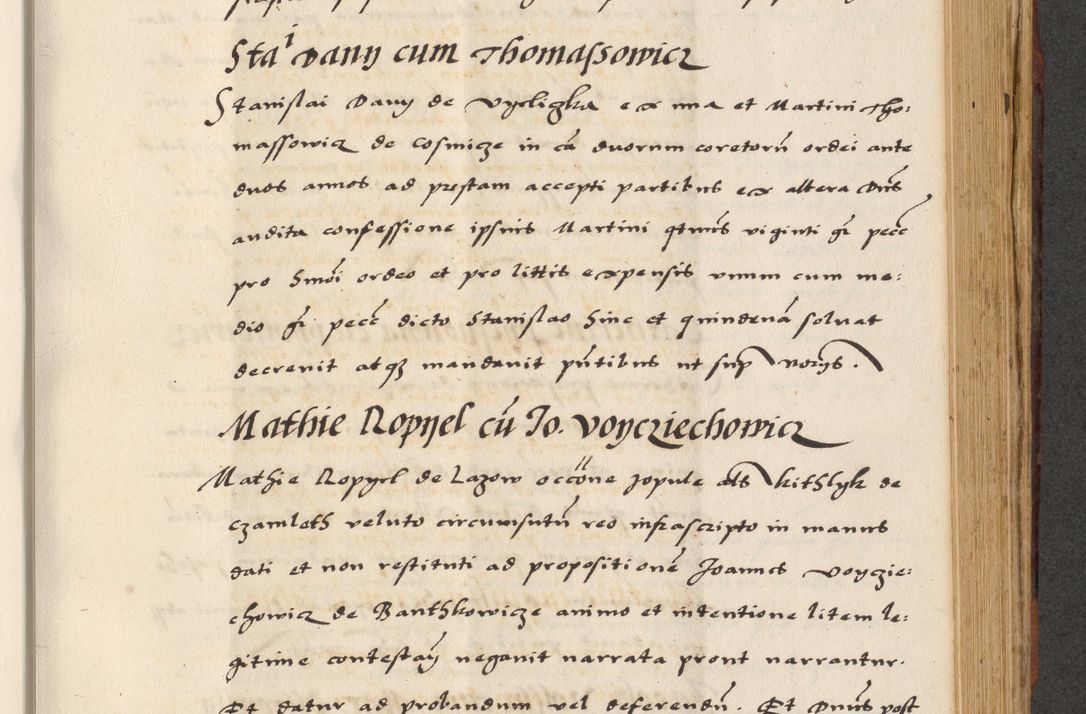 Sta^i Dany cum Thomassowicz
Stanislai Dany de Vyeligka ex una et Martini Tho:
massowicz de Cosmicze in cā duorum coretorū ordei ante
duos annos ad prestam accepti partibus ex altera Dnūs
audita confessione ipsius Martini qtnūs viginti gr pecc̄
pro hmōi ordeo et pro littis expensis unum cum me:
dio gr pecc̄ dicto Stanislao hinc et quindenā soluat
decreuit atqȝ mandauit pn̄tibus ut sup norȳs.
Mathie Ropyel cū Io. Voycziechowicz
Mathie Ropyel de Lazow occōne jopule als kithlyk de
czamleth veluto circumsutū reo infrascripto in manus
dati et non restituti ad propositionē Joannes Voyczie:
chowicz de Banthkowicze animo et intentione litem le:
gitime contestaȳ negauit narrata prout narrantur.
Et datur ad probandum vel deferendū. Et Dnūs post